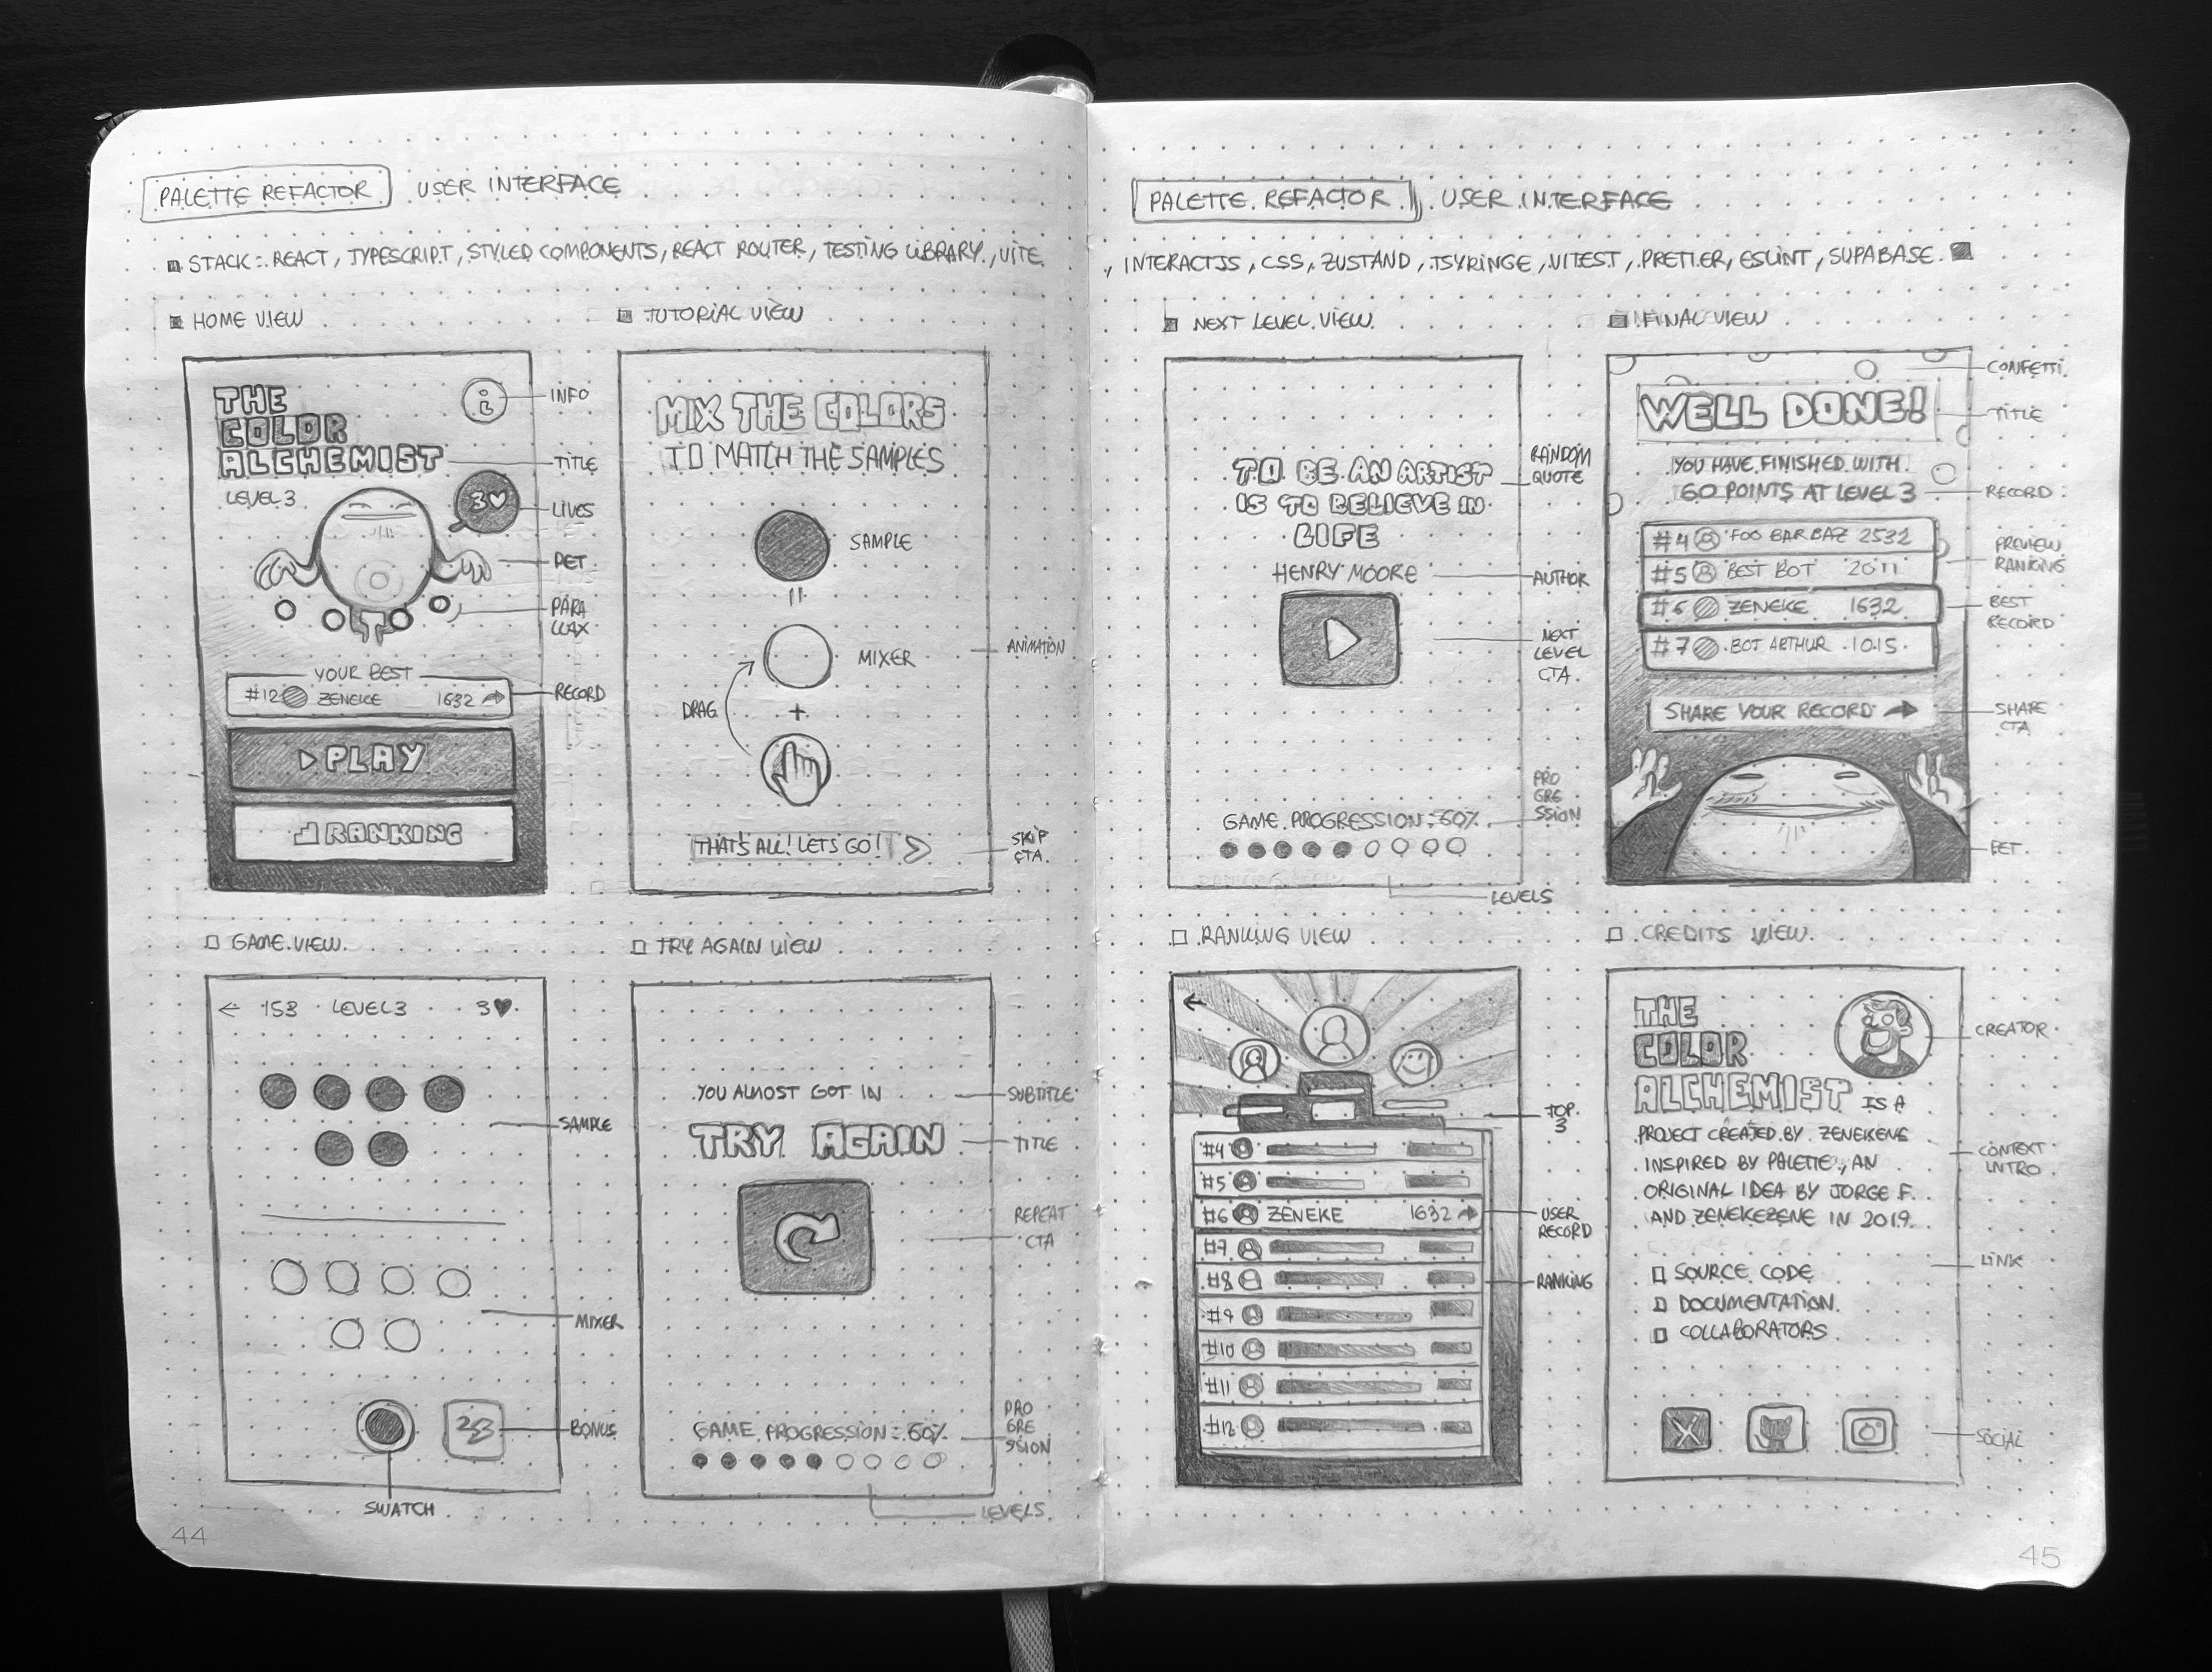 PALETTE REFACTOR USER INTERFACE
STACK: REACT, TYPESCRIPT, STYLED COMPONENTS, REACT ROUTER, TESTING LIBRARY, VITE
HOME VIEW
THE
COLOR
ALCHEMIST
LEVEL 3
3
INFO
TITLE
LIVES
PET
PARA
LLAX
YOUR BEST
#12 ZENEKE 1632
RECORD
PLAY
RANKING
TUTORIAL VIEW
MIX THE COLORS
TO MATCH THE SAMPLES
SAMPLE
MIXER
ANIMATION
DRAG
+
THAT'S ALL! LETS GO!
SKIP
CTA
GAME VIEW
153 LEVEL 3 3
SAMPLE
MIXER
BONUS
SWATCH
TRY AGAIN VIEW
YOU ALMOST GOT IN
TRY AGAIN
SUBTITLE
TITLE
REPEAT
CTA
GAME PROGRESSION: 60%
PRO
GRE
SSION
LEVELS
44
PALETTE REFACTOR USER INTERFACE
, INTERACTJS, CSS, ZUSTAND, TSYRINGE, VITEST, PRETIER, ESLINT, SUPABASE.
NEXT LEVEL VIEW
TO BE AN ARTIST
IS TO BELIEVE IN
LIFE
HENRY MOORE
RANDOM
QUOTE
AUTHOR
NEXT
LEVEL
CTA
GAME PROGRESSION: 60%
PRO
GRE
SSION
LEVELS
FINAL VIEW
WELL DONE!
YOU HAVE FINISHED WITH
60 POINTS AT LEVEL 3
#4 FOO BAR BAZ 2532
#5 BEST BOT 2011
#6 ZENEKE 1632
#7 BOT ARTHUR 1015
SHARE YOUR RECORD
CONFETTI
TITLE
RECORD
PREVIEW
RANKING
BEST
RECORD
SHARE
CTA
PET
RANKING VIEW
#4
#5
#6 ZENEKE 1632
#7
#8
#9
#10
#11
#12
TOP
3
USER
RECORD
RANKING
CREDITS VIEW
THE
COLOR
ALCHEMIST IS A
PROJECT CREATED BY ZENEKENE
INSPIRED BY PALETTE, AN
ORIGINAL IDEA BY JORGE F.
AND ZENEKEZENE IN 2019.
SOURCE CODE
DOCUMENTATION
COLLABORATORS
X
CREATOR
CONTEXT
INTRO
LINK
SOCIAL
45